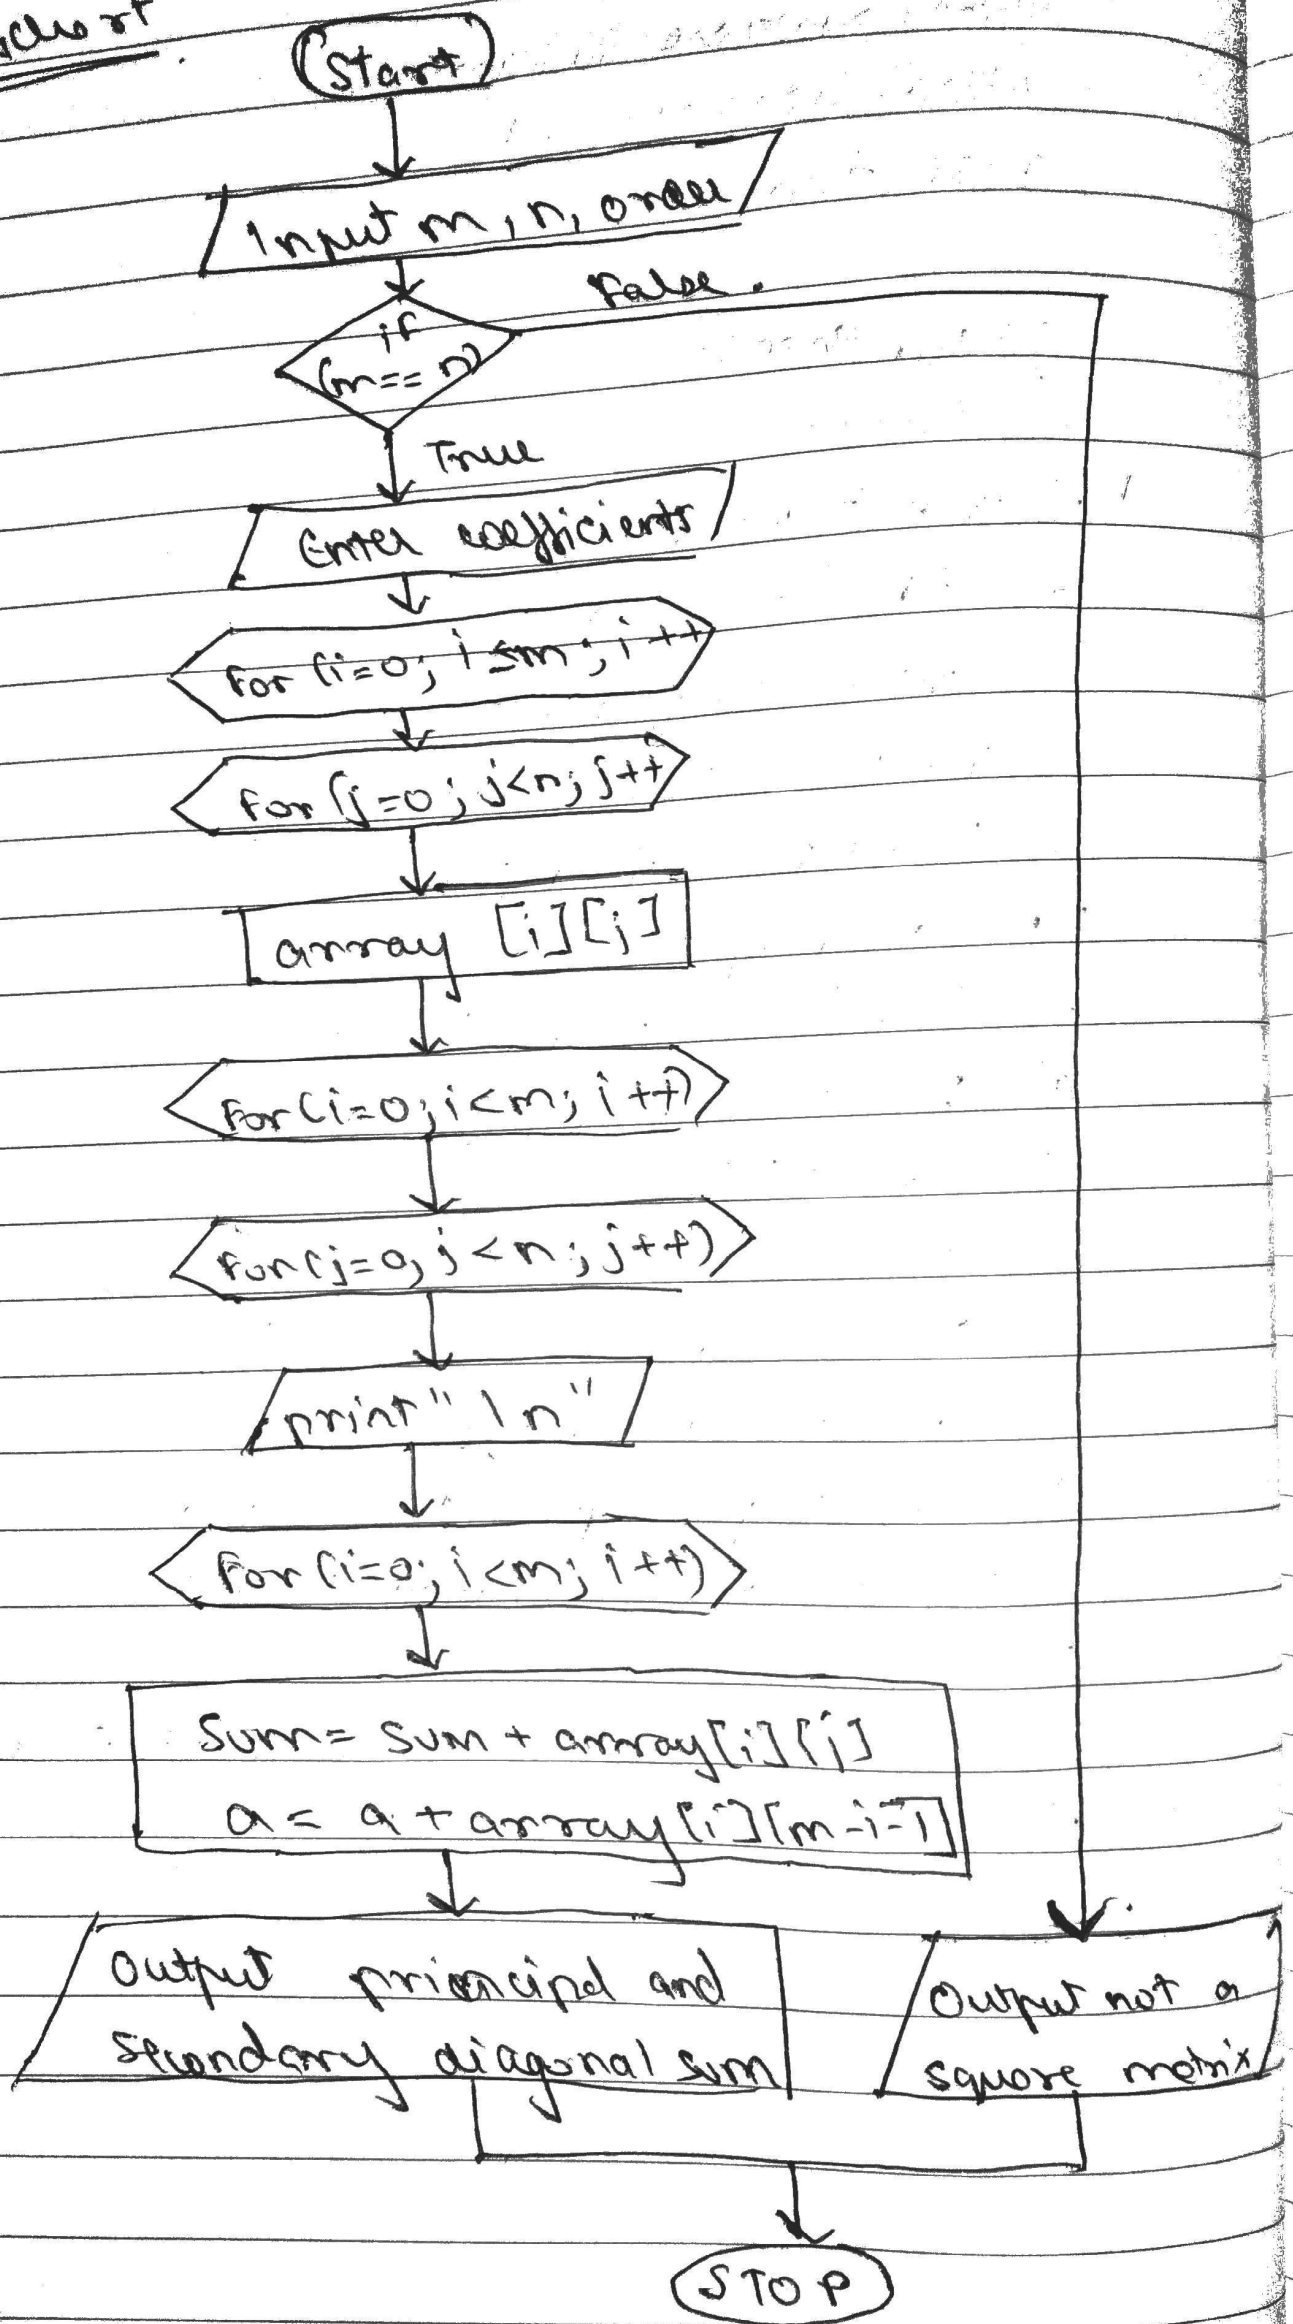 Start
Input m, n, order
False.
if
(m== n)
True
Enter coefficients
For (i=0; i ≤m; i ++
For (j=0; j<n; j++
array [i][j]
For(i=0; i<m; i ++)
For(j=0, j <n; j++)
print "\n"
For (i=0; i<m; i ++)
Sum= sum + array[i][j]
a= a + array[i][m-i-1]
Output principal and
secondary diagonal sum
Output not a
square matrix
STOP